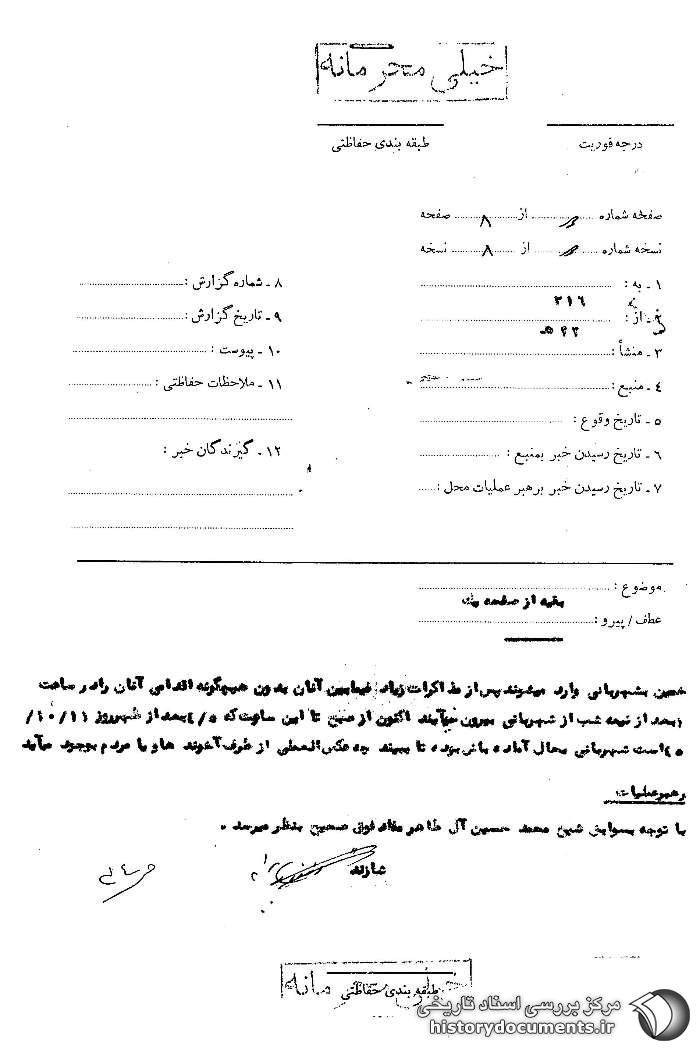 خیلی محرمانه
درجه فوریت
طبقه بندی حفاظتی
صفحه شماره ........ از ۸ صفحه
نسخه شماره ........ از ۸ نسخه
۱ - به : ۳۱۶
۲ - از : ۲۲ ه‍
۳ - منشأ :
۴ - منبع :
۵ - تاریخ وقوع :
۶ - تاریخ رسیدن خبر بمنبع :
۷ - تاریخ رسیدن خبر برهبر عملیات محل :
۸ - شماره گزارش :
۹ - تاریخ گزارش :
۱۰ - پیوست :
۱۱ - ملاحظات حفاظتی :
۱۲ - گیرندگان خبر :
موضوع :
بقیه از صفحه یک
عطف / پیرو :
خمین بشهربانی وارد میشوند پس از مذاکرات زیاد فیمابین آنان بدون هیچگونه اقدامی آنان را در ساعت
۱ بعد از نیمه شب از شهربانی بیرون میآیند اکنون از صبح تا این ساعت که ۴/۵ بعد از ظهر روز ۱۰/۱۱/
۴۵ است شهربانی بحال آماده باش بوده تا ببیند چه عکس العملی از طرف آخوند ها و یا مردم بوجود میآید
رهبر عملیات:
با توجه بسوابق شیخ محمد حسین آل طاهر مفاد فوق صحیح بنظر میرسد .
شازند
طبقه بندی حفاظتی
مرکز بررسی اسناد تاریخی
historydocuments.ir